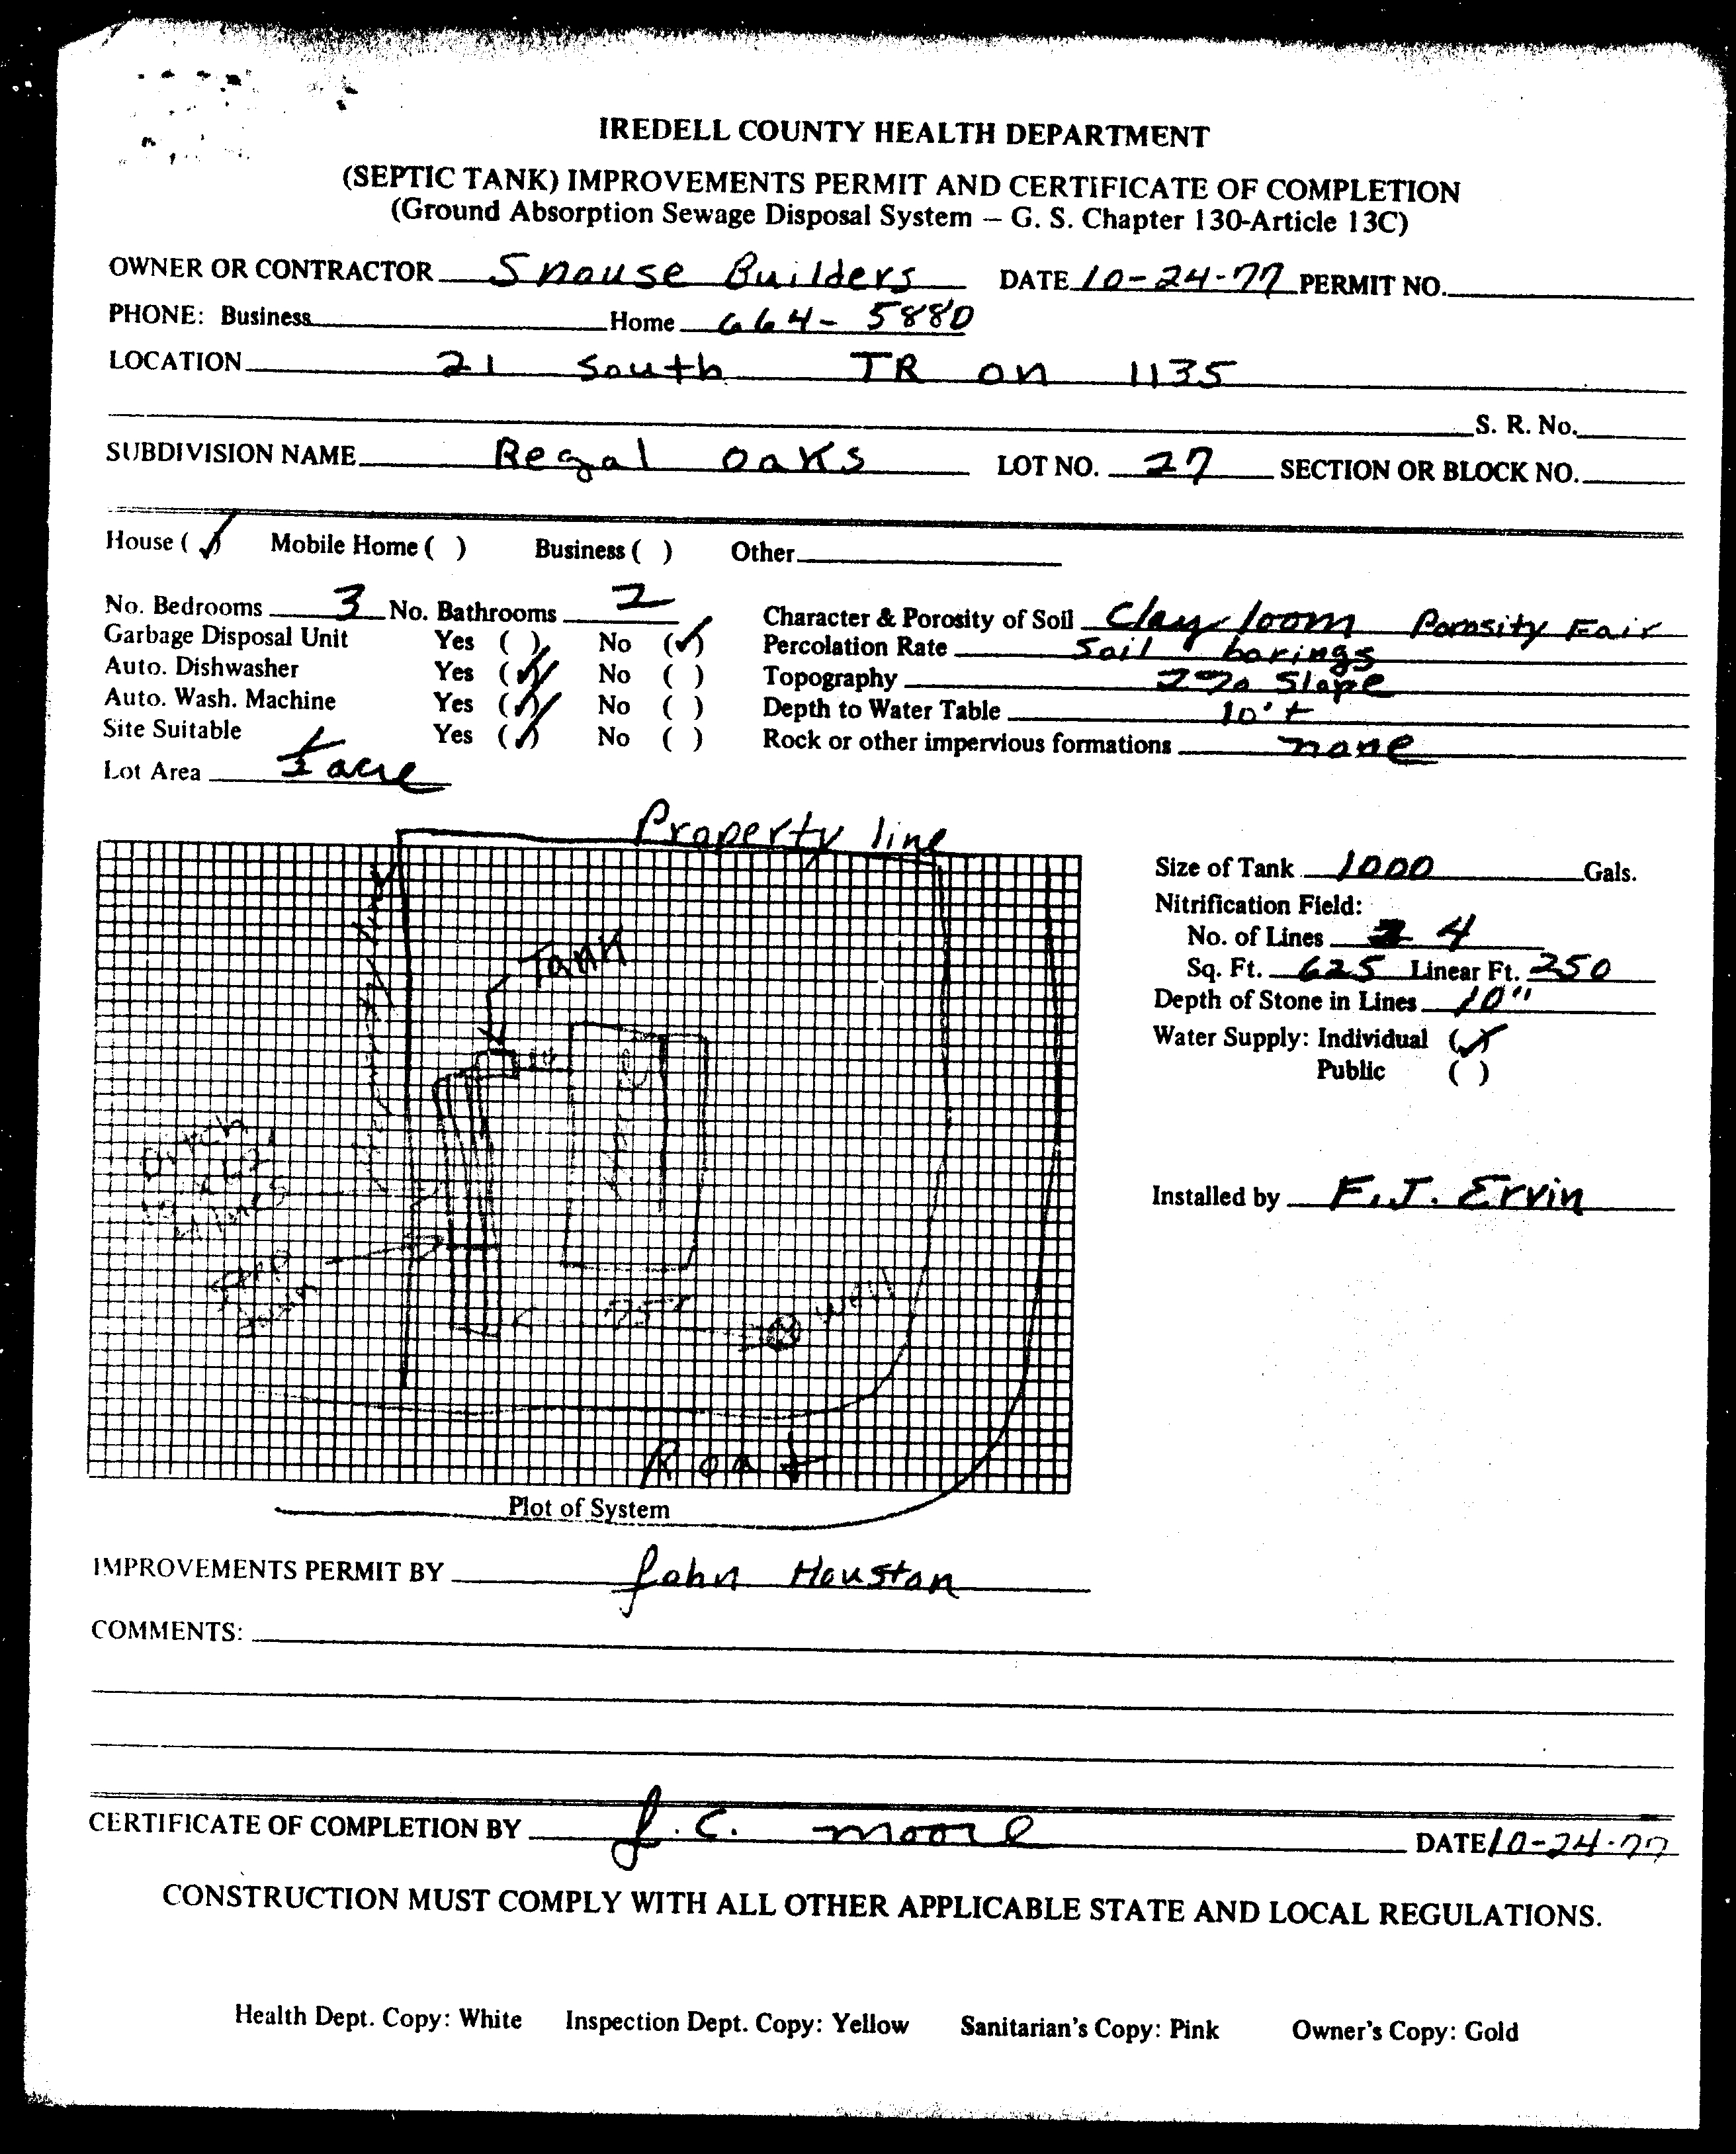 IREDELL COUNTY HEALTH DEPARTMENT
(SEPTIC TANK) IMPROVEMENTS PERMIT AND CERTIFICATE OF COMPLETION
(Ground Absorption Sewage Disposal System – G. S. Chapter 130-Article 13C)
OWNER OR CONTRACTOR Snouse Builders DATE 10-24-77 PERMIT NO.
PHONE: Business Home 664-5880
LOCATION 21 South TR on 1135
S. R. No.
SUBDIVISION NAME Regal Oaks LOT NO. 27 SECTION OR BLOCK NO.
House (✓) Mobile Home ( ) Business ( ) Other
No. Bedrooms 3 No. Bathrooms 2
Garbage Disposal Unit Yes ( ) No (✓)
Auto. Dishwasher Yes (✓) No ( )
Auto. Wash. Machine Yes (✓) No ( )
Site Suitable Yes (✓) No ( )
Lot Area ½ acre
Character & Porosity of Soil Clay loom Porosity Fair
Percolation Rate Soil borings
Topography 2% Slope
Depth to Water Table 10'+
Rock or other impervious formations none
Property line
Tank
Ditch
4 Lines
Step Down
75'
Well
Road
Plot of System
Size of Tank 1000 Gals.
Nitrification Field:
No. of Lines 4
Sq. Ft. 625 Linear Ft. 250
Depth of Stone in Lines 10"
Water Supply: Individual (✓)
Public ( )
Installed by F.J. Ervin
IMPROVEMENTS PERMIT BY John Houston
COMMENTS:
CERTIFICATE OF COMPLETION BY J. C. Moore DATE 10-24-77
CONSTRUCTION MUST COMPLY WITH ALL OTHER APPLICABLE STATE AND LOCAL REGULATIONS.
Health Dept. Copy: White Inspection Dept. Copy: Yellow Sanitarian's Copy: Pink Owner's Copy: Gold